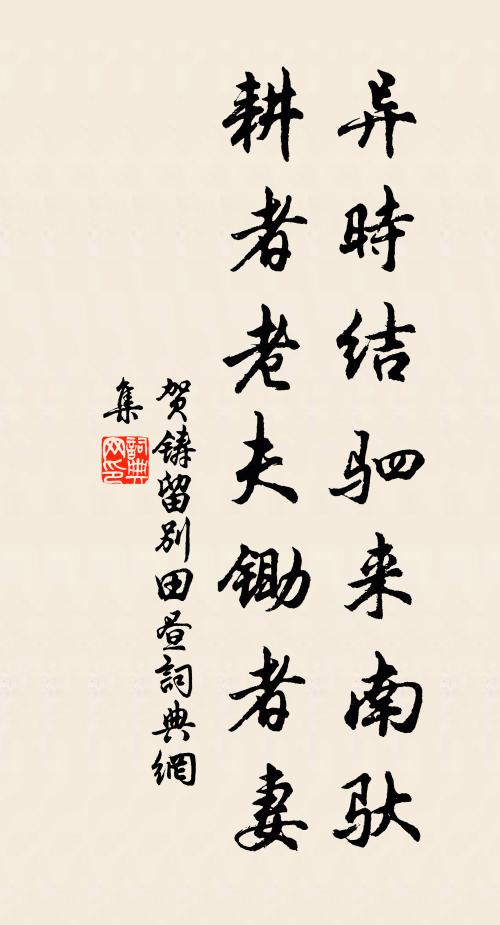 异時结驷来南馱
耕者老夫锄者妻
贺鑄留别田昼詞典網
集
詞典
网印